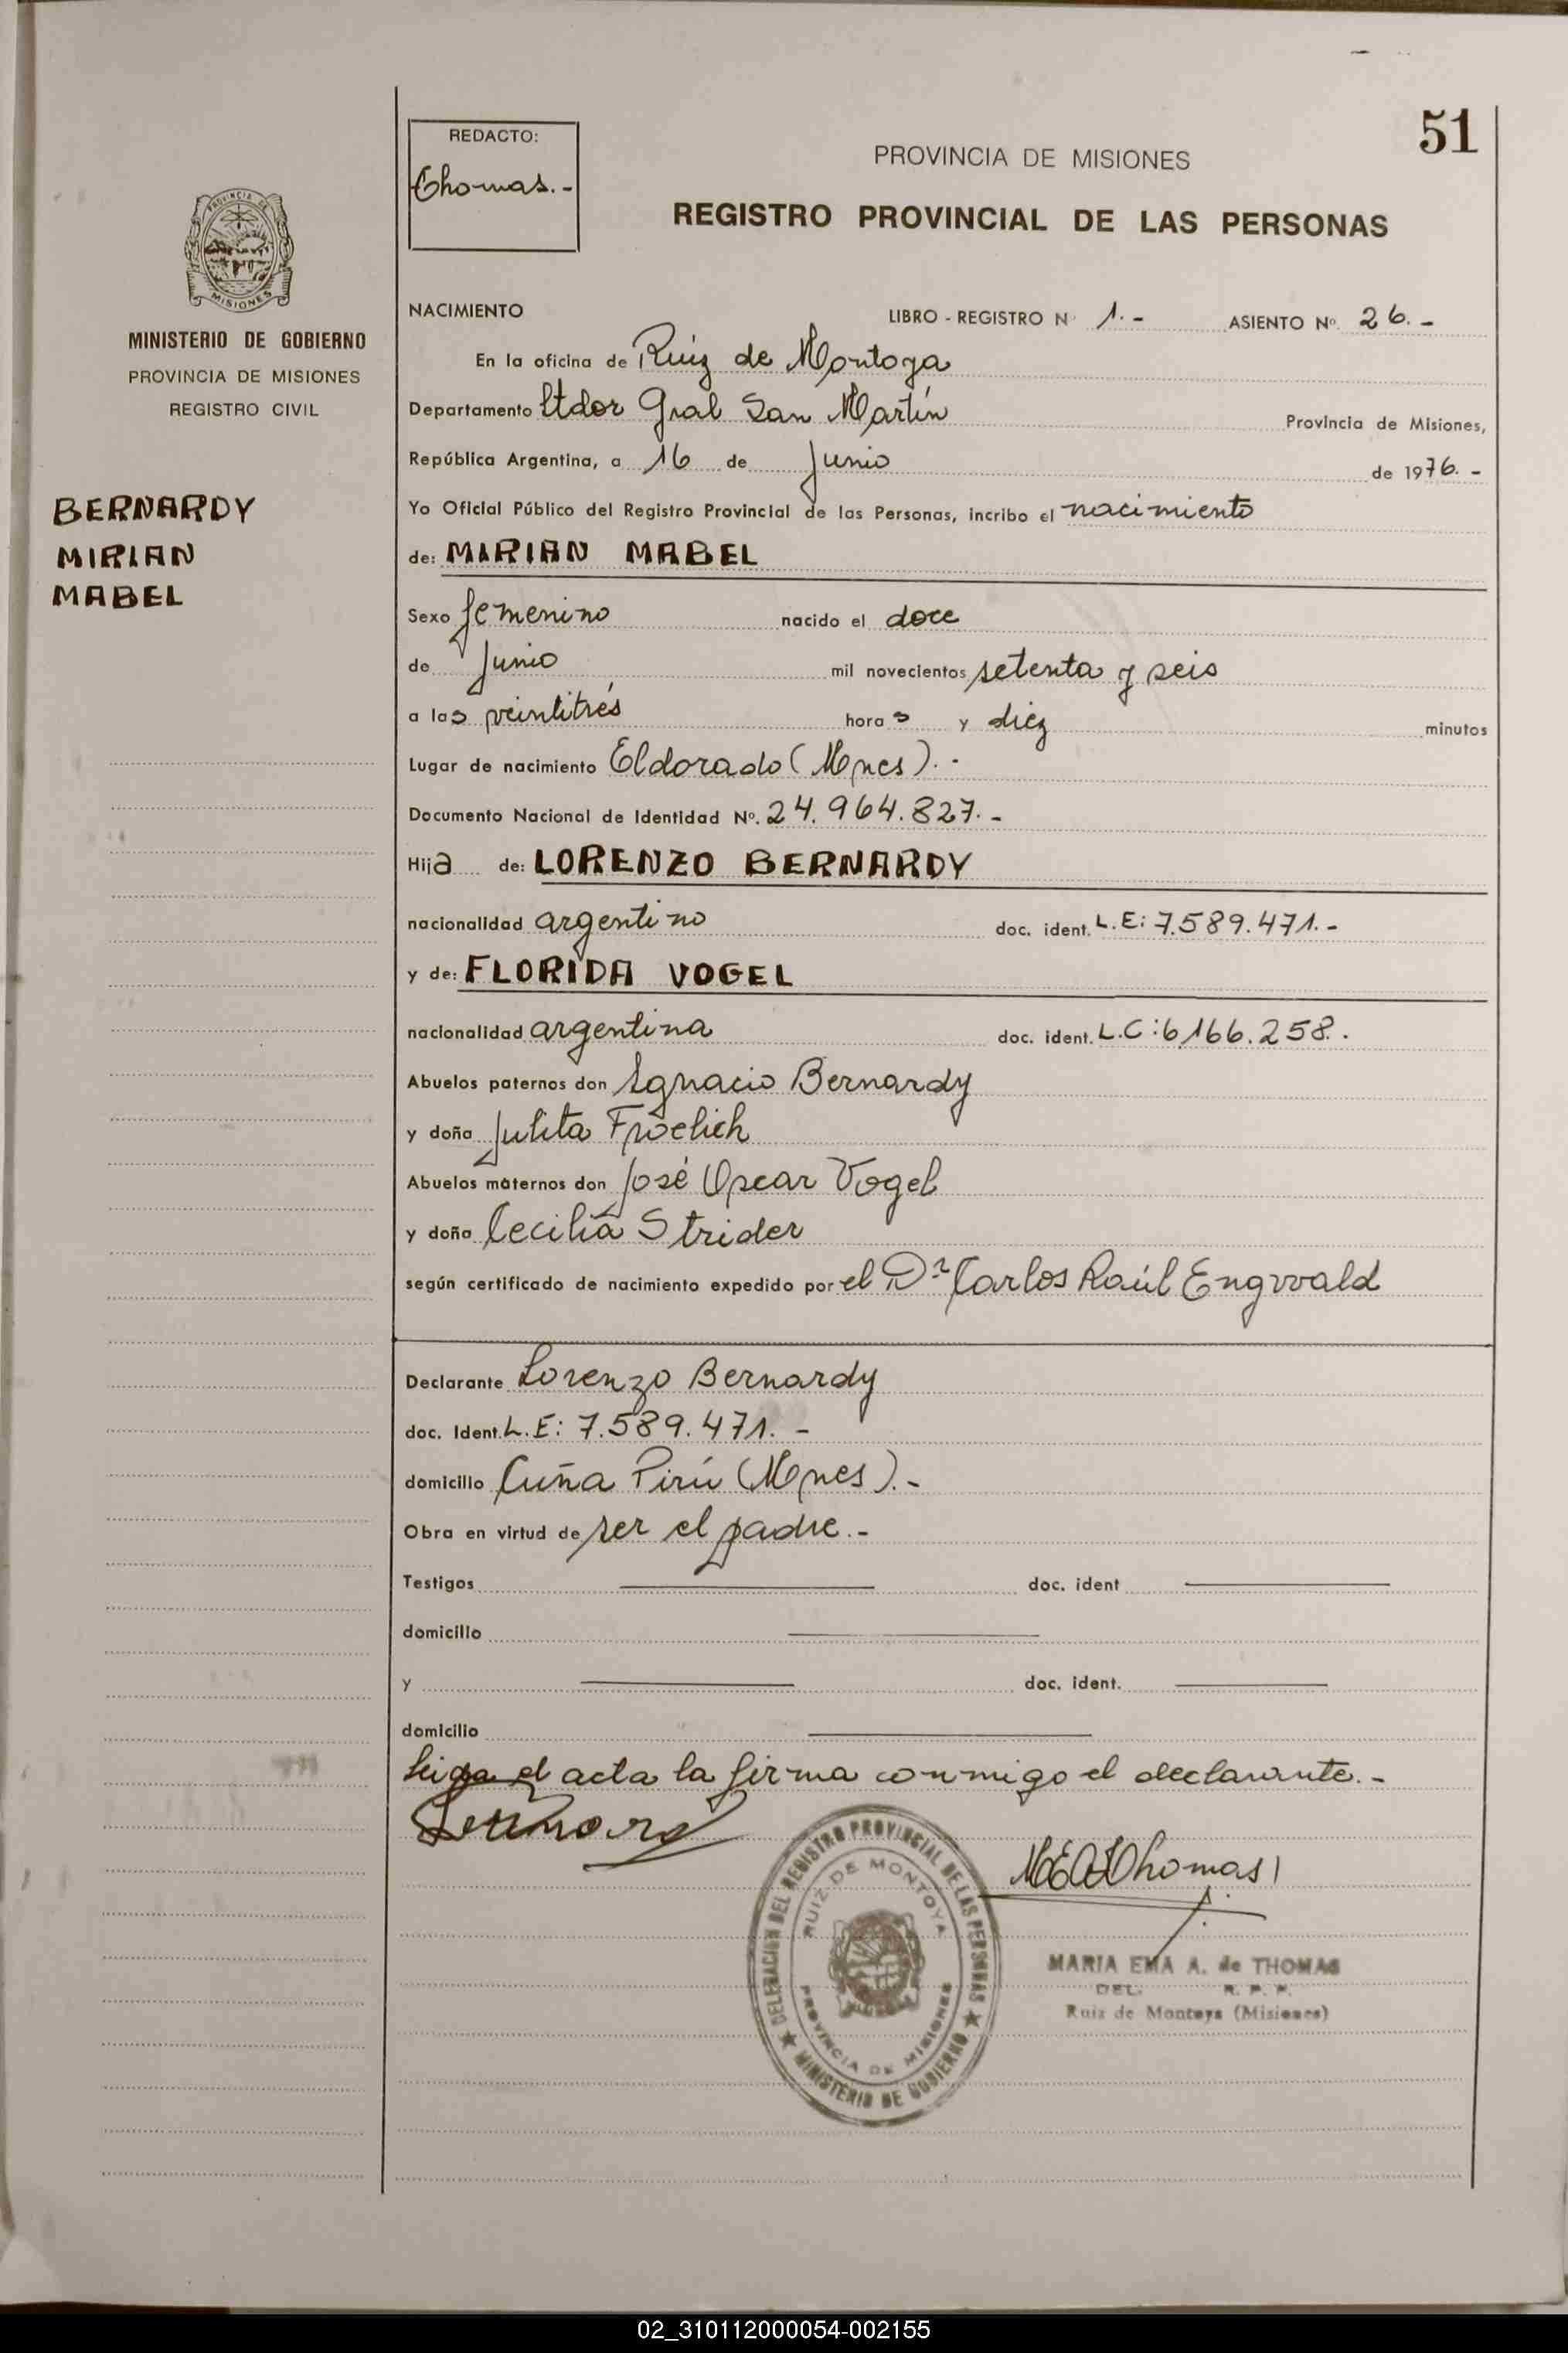 51
REDACTO:
Thomas.-
PROVINCIA DE MISIONES
REGISTRO PROVINCIAL DE LAS PERSONAS
PROVINCIA DE
MISIONES
MINISTERIO DE GOBIERNO
PROVINCIA DE MISIONES
REGISTRO CIVIL
BERNARDY
MIRIAN
MABEL
NACIMIENTO LIBRO - REGISTRO N 1.- ASIENTO Nº. 26.-
En la oficina de Ruiz de Montoya
Departamento Ltdor Gral San Martín Provincia de Misiones,
República Argentina, a 16 de Junio de 1976.-
Yo Oficial Público del Registro Provincial de las Personas, incribo el nacimiento
de: MIRIAN MABEL
Sexo femenino nacido el doce
de Junio mil novecientos setenta y seis
a las veintitrés horas y diez minutos
Lugar de nacimiento Eldorado (Mnes).-
Documento Nacional de Identidad Nº. 24.964.827.-
Hija de: LORENZO BERNARDY
nacionalidad argentino doc. ident. L.E: 7.589.471.-
y de: FLORIDA VOGEL
nacionalidad argentina doc. ident. L.C: 6.166.258.
Abuelos paternos don Ignacio Bernardy
y doña Julita Froelich
Abuelos maternos don José Oscar Vogel
y doña Cecilia Strider
según certificado de nacimiento expedido por el Dr Carlos Raúl Engwald
Declarante Lorenzo Bernardy
doc. Ident. L.E: 7.589.471.-
domicilio Cuña Pirú (Mnes).-
Obra en virtud de ser el padre.-
Testigos doc. ident
domicilio
y doc. ident.
domicilio
el acta la firma conmigo el declarante.-
Thomas
DELEGACION DEL REGISTRO PROVINCIAL DE LAS PERSONAS
RUIZ DE MONTOYA
PROVINCIA DE MISIONES
MINISTERIO DE GOBIERNO
MARIA EMA A. de THOMAS
DEL. R. P. P.
Ruiz de Montoya (Misiones)
02_310112000054-002155